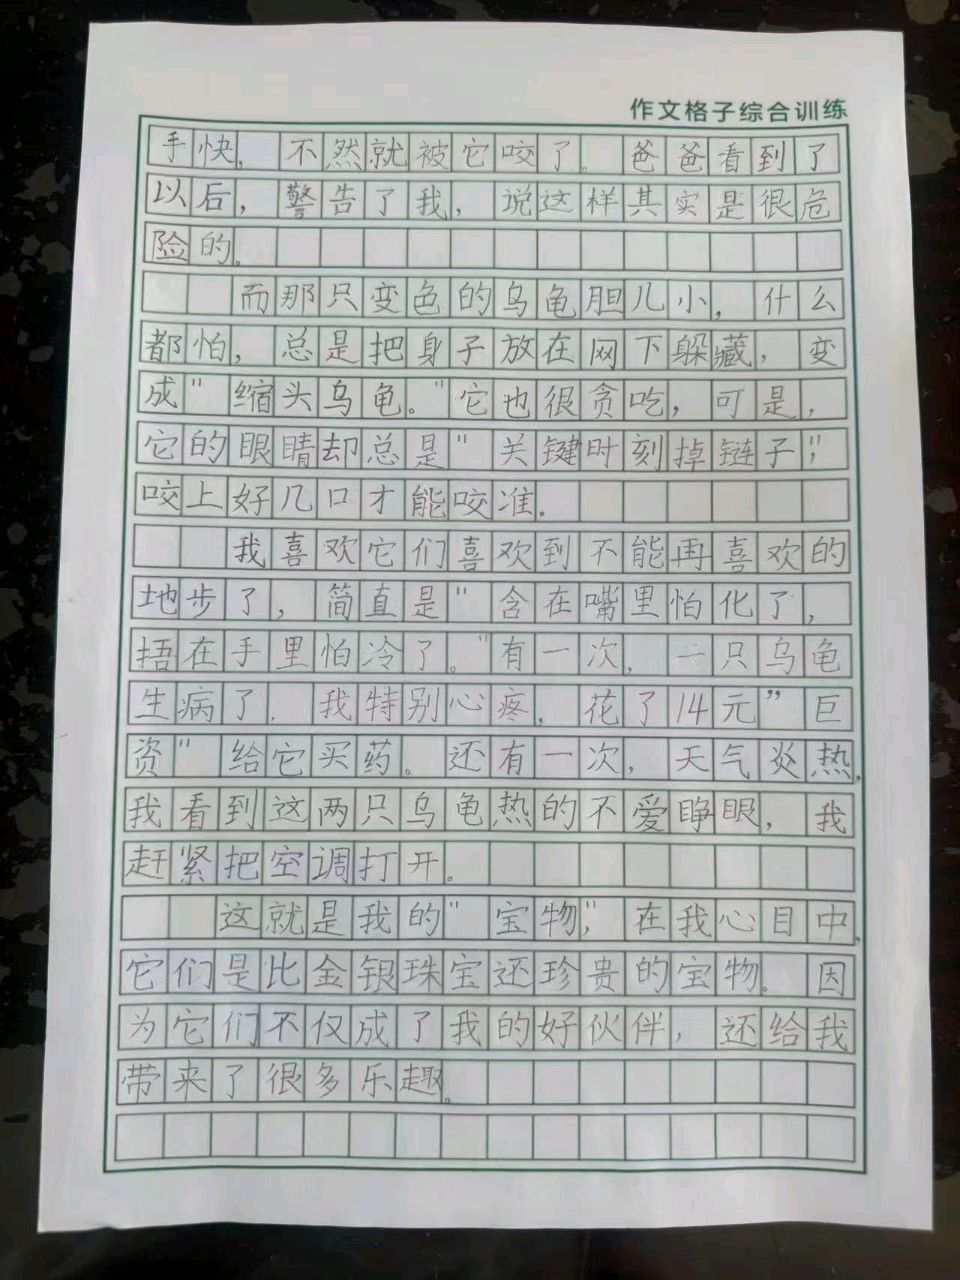 作文格子综合训练
手快，不然就被它咬了。爸爸看到了
以后，警告了我，说这样其实是很危
险的。
而那只变色的乌龟胆儿小，什么
都怕，总是把身子放在网下躲藏，变
成"缩头乌龟。"它也很贪吃，可是，
它的眼睛却总是"关键时刻掉链子"，
咬上好几口才能咬准.
我喜欢它们喜欢到不能再喜欢的
地步了，简直是"含在嘴里怕化了，
捂在手里怕冷了。"有一次，一只乌龟
生病了.我特别心疼，花了14元”巨
资"给它买药。还有一次，天气炎热，
我看到这两只乌龟热的不爱睁眼，我
赶紧把空调打开。
这就是我的"宝物，"在我心目中，
它们是比金银珠宝还珍贵的宝物。因
为它们不仅成了我的好伙伴，还给我
带来了很多乐趣。